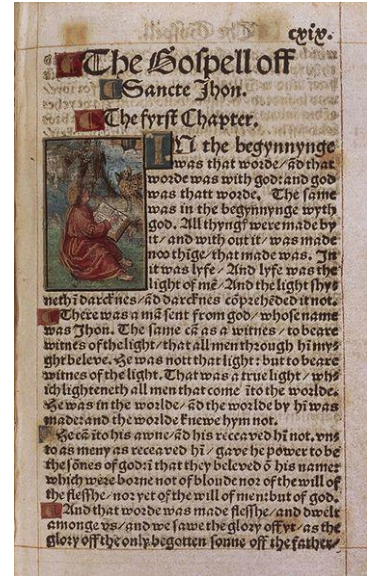 cxix.
The Gospell off
Sancte Jhon.
The fyrst Chapter.
IN the begynnynge
was that worde/ ãd that
worde was with god: and god
was thatt worde. The same
was in the begynnynge wyth
god. All thyngf were made by
it/ and with out it/ was made
noo thĩge/ that made was. In
it was lyfe/ And lyfe was the
light of mẽ/ And the light shy⸗
neth ĩ darcknes/ ãd darcknes cõprehẽded it not.
There was a mã sent from god/ whose name
was Jhon. The same cã as a witnes/ to beare
witnes of the light/ that all men through hĩ mys⸗
ght beleve. He was nott that light: but to beare
witnes of the light. That was a true light/ whi⸗
ich lighteneth all men that come ĩto the worlde.
He was in the worlde/ ãd the worlde by hĩ was
made: and the worlde knewe hym not.
He cã ĩto his awne/ ãd his receaved hĩ not. vns
to as meny as receaved hĩ/ gave he power to be
the sõnes of god: ĩ that they beleved õ his name:
which were borne not of bloude nor of the will of
the flesshe/ nor yet of the will of men: but of god.
And that worde was made flesshe/ and dwelt
amonge vs/ and we sawe the glory off yt/ as the
glory off the only begotten sonne off the father/